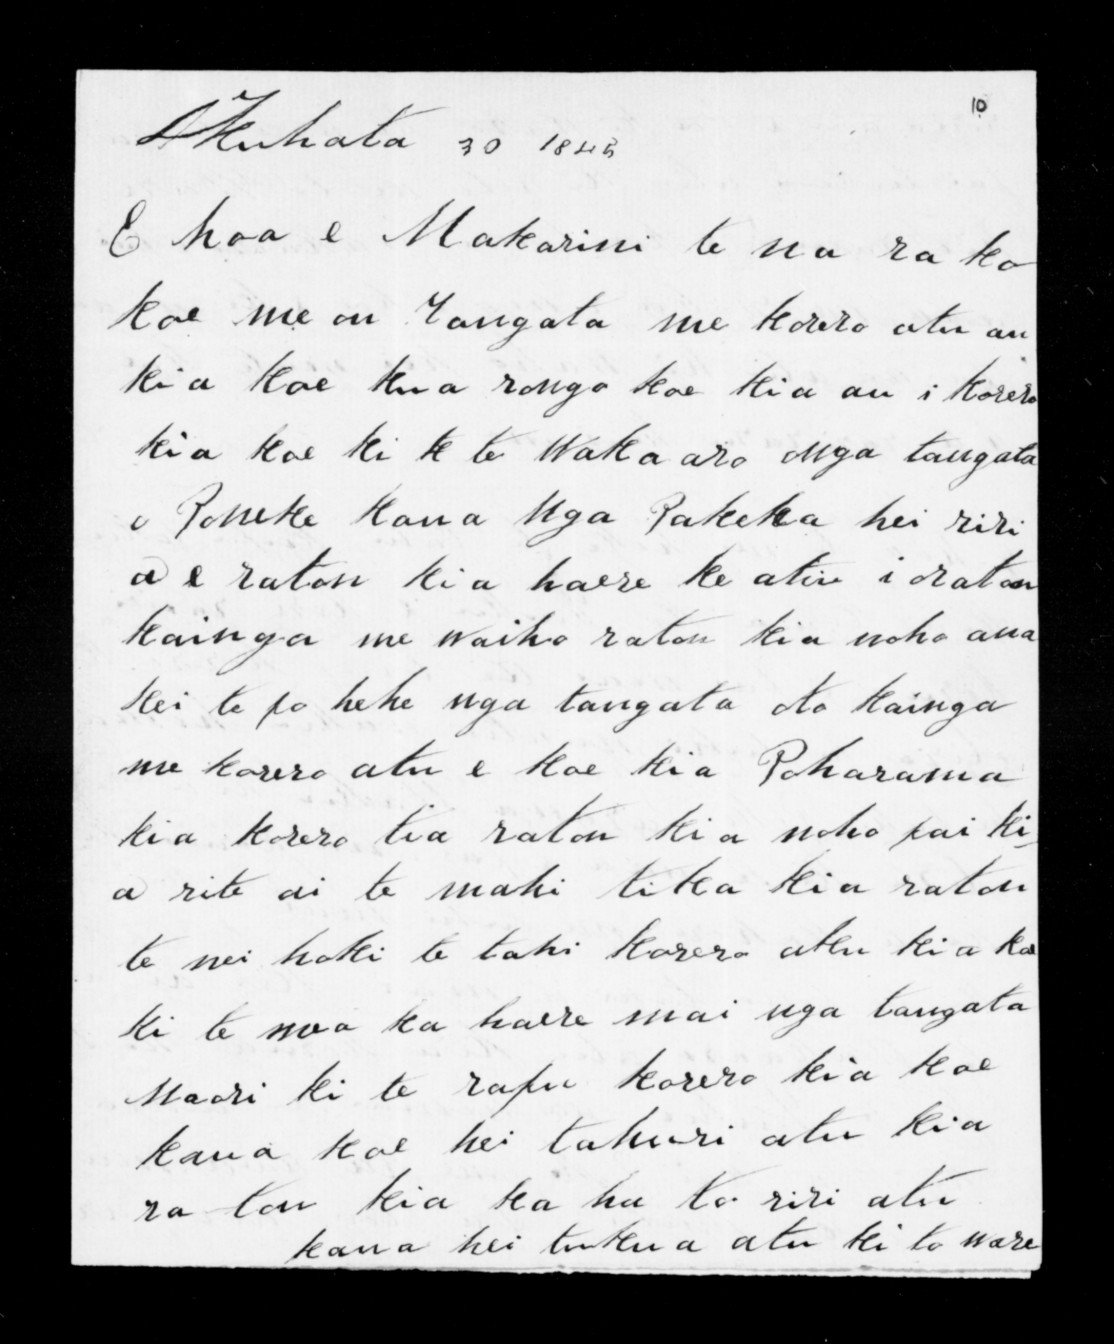 10
Akuhata 30 1845
E hoa e Makarini te na ra ko
koe me ou Tangata me korero atu au
ki a koe kua rongo koe kia au i korero
kia koe ki te te Wakaaro onga tangata
o Poneke kaua Nga Pakeka hei riri
a e ratou ki a haere ke atu i oratou
kainga me waiho ratou kia noho ana
kei te po hehe nga tangata oto kainga
me korero atu e koe kia Poharama
kia korero tia ratou ki a noho pai ki-
a rite ai te mahi tika kia ratou
te nei hoki te tahi korero atu ki a koe
ki te mea ka haere mai nga tangata
Maori ki te rapu korero kia koe
kaua koe hei tahuri atu kia
ra tou kia ka ha to riri atu
kaua hei tukua atu ki to ware